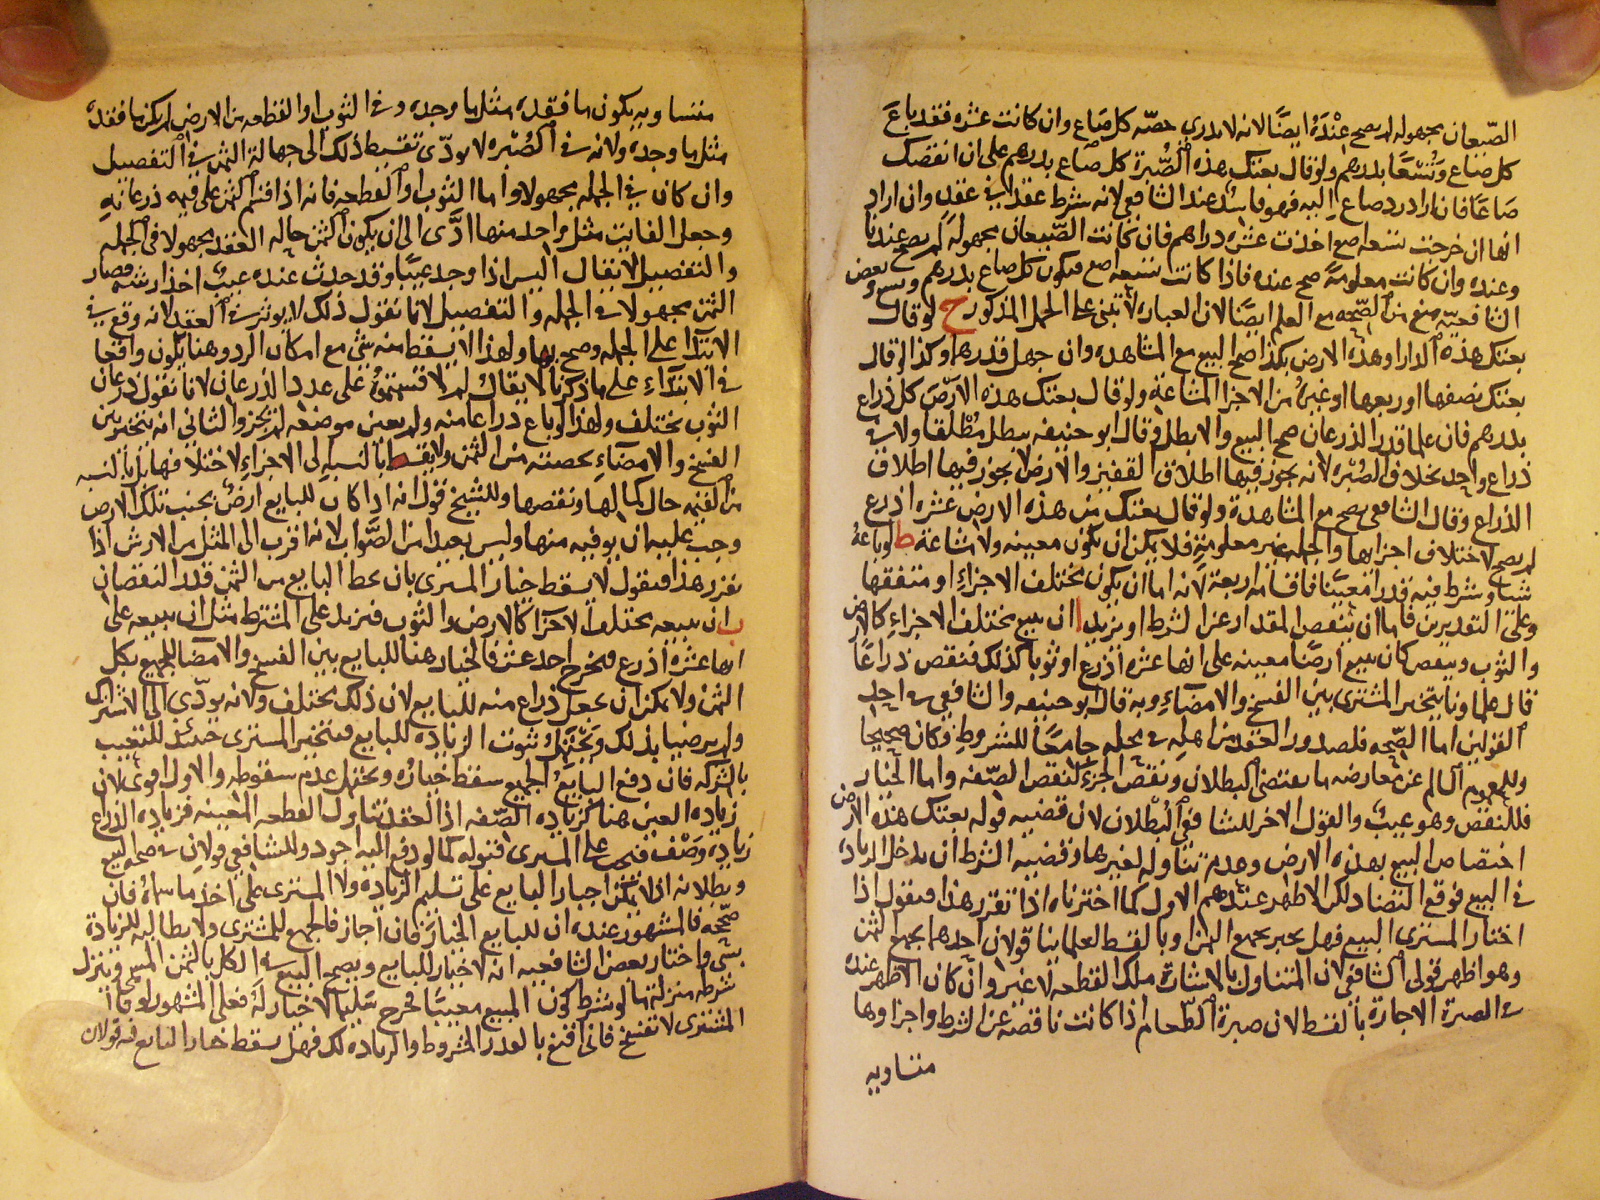 الصيعان مجهوله لم يصح عنده ايضا لانه لا يدري حصه كل صاع وان كانت عشره فقد باع
كل صاع وتسعا بدرهم ولو قال بعتك هذه الصبرة كل صاع بدرهم على ان انقصك
صاعا فان اراد رد صاع اليه فهو فاسد عند الشافعي لانه شرط عقد في عقد وان اراد
انها ان خرجت تسعه اصع اخذت عشره دراهم فان كانت الصيعان مجهوله لم يصح عندنا
وعنده وان كانت معلومة صح عنده فاذا كانت تسعه اصع فيكون كل صاع بدرهم وتسع وبعض
الشافعيه منع من الصحه مع العلم ايضا لان العباره لا تبنى على المحمل المذكور ح لو قال
بعتك هذه الدار او هذه الارض بكذا صح البيع مع المشاهده وان جهل قدرها وكذا لو قال
بعتك نصفها او ربعها او غيره من الاجزا المشاعة ولو قال بعتك هذه الارض كل ذراع
بدرهم فان علما قدر الذرعان صح البيع والا بطل وقال ابو حنيفه يبطل مطلقا ولا في
ذراع واحد بخلاف الصبره لانه يجوز فيها اطلاق القفيز والارض لا يجوز فيها اطلاق
الذراع وقال الشافعي يصح مع المشاهدة ولو قال بعتك من هذه الارض عشره اذرع
لم يصح لاختلاف اجزايها والجمله غير معلومة فلا يمكن ان تكون معينه ولا مشاعة ط لو باعه
شيئا وشرط فيه قدرا معينا فاقسامه اربعة لانه اما ان يكون مختلف الاجزاء او متفقها
وعلى التقديرين فاما ان ينقص المقدار عن الشرط او يزيد ا ان يبيع مختلف الاجزاء كالارض
والثوب وينقص كان يبيع ارضا معينه على انها عشره اذرع او ثوبا كذلك فنقص ذراعا
قال علماونا يتخير المشتري بين الفسخ والامضاء وبه قال ابو حنيفه والشافعي في احد
القولين اما الصحه فلصدور العقد من اهله في محله جامعا للشروط وكان صحيحا
وللعموم السالم عن معارضه ما يقتضي البطلان ونقص الجزء كنقص الصفه واما الخيار
فللنقص وهو عيب والقول الاخر للشافعي البطلان لان قضيه قوله بعتك هذه الارض
اختصاص البيع بهذه الارض وعدم تناوله لغيرها وقضيه الشرط ان يدخل الزياده
في البيع فوقع التضاد لكن الاظهر عندهم الاول كما اخترناه اذا تقرر هذا فنقول اذا
اختار المشتري البيع فهل يجبر بجميع الثمن او بالقسط لعلماينا قولان احدهما بجميع الثمن
وهو اظهر قولي الشافعي لان المتناول بالاشارة ملك القطعه لا غير وان كان الاظهر عنده
في الصبرة الاجازة بالقسط لان صبرة الطعام اذا كانت ناقصه عن الشرط واجزاوها
متساويه
متساويه يكون ما فقده مثل ما وجده وفي الثوب او القطعه من الارض لم يكن ما فقده
مثل ما وجده ولانه في الصبره لا يودي تقسيط ذلك الى جهالة الثمن في التفصيل
وان كان في الجمله مجهولا واما الثوب او القطعه فانه اذا قسم الثمن على قيمه ذرعانه
وجعل الفايت مثل واحد منها ادى الى ان يكون الثمن حاله العقد مجهولا في الجمله
والتفصيل لا يقال اليس اذا وجد عيبا وقد حدث عنده عيب اخذ ارشه فصار
الثمن مجهولا في الجمله والتفصيل لانا نقول ذلك لا يوثر في العقد لانه وقع في
الابتدا على الجمله وصح بها ولهذا لا يسقط منه شي مع امكان الرد وهنا يكون واقعا
في الابتداء على ما ذكرنا لا يقال لم لا قسمتموه على عدد الذرعان لانا نقول ذرعان
الثوب تختلف ولهذا لو باع ذراعا منه ولم يعين موضعه لم يجز والثاني انه يتخير بين
الفسخ والامضاء بحصته من الثمن ولا يقسط بالنسبه الى الاجزاء لاختلافها بل بالنسبه
من القيمه حال كمالها ونقصها وللشيخ قول انه اذا كان للبايع ارض بجنب تلك الارض
وجب عليه ان يوفيه منها وليس بعيدا من الصواب لانه اقرب الى المثل من الارش اذا
تقرر هذا فنقول لا يسقط خيار المشتري بان يحط البايع من الثمن قدر النقصان
ب ان يبيعه مختلف الاجزا كالارض والثوب فيزيد على المشترط مثل ان يبيعه على
انها عشره اذرع فتخرج احد عشر فالخيار هنا للبايع بين الفسخ والامضا للجميع بكل
الثمن ولا يمكن ان يجعل ذراع منه للبايع لان ذلك مختلف ولانه يودي الى الاشتراك
ولم يرضيا بذلك ويحتمل ثبوت الزياده للبايع فيتخير المشتري حينئذ للتعيب
بالشركه فان دفع البايع الجميع سقط خياره ويحتمل عدم سقوطه والاول اقوى لان
زياده العين هنا كزياده الصفه اذ العقد تناول القطعه المعينه فزياده الذراع
زياده وصف فيجب على المشتري قبوله كما لو دفع اليه اجود وللشافعي قولان في صحه البيع
وبطلانه اذ لا يمكن اجبار البايع على تسليم الزيادة ولا المشتري على اخذ ما سماه فان
صححه فالمشهور عنده ان للبايع الخيار فان اجاز فالجميع للمشتري ولا يطالبه للزيادة
بشي واختار بعض الشافعيه انه لا خيار للبايع ويصح البيع في الكل بالثمن المسمى وينزل
شرطه منزلة ما لو شرط كون المبيع معيبا فخرج سليما لا خيار له فعلى المشهور لو قال
المشتري لا تفسخ فاني اقنع بالقدر المشروط والزياده لك فهل يسقط خيار البايع فيه قولان